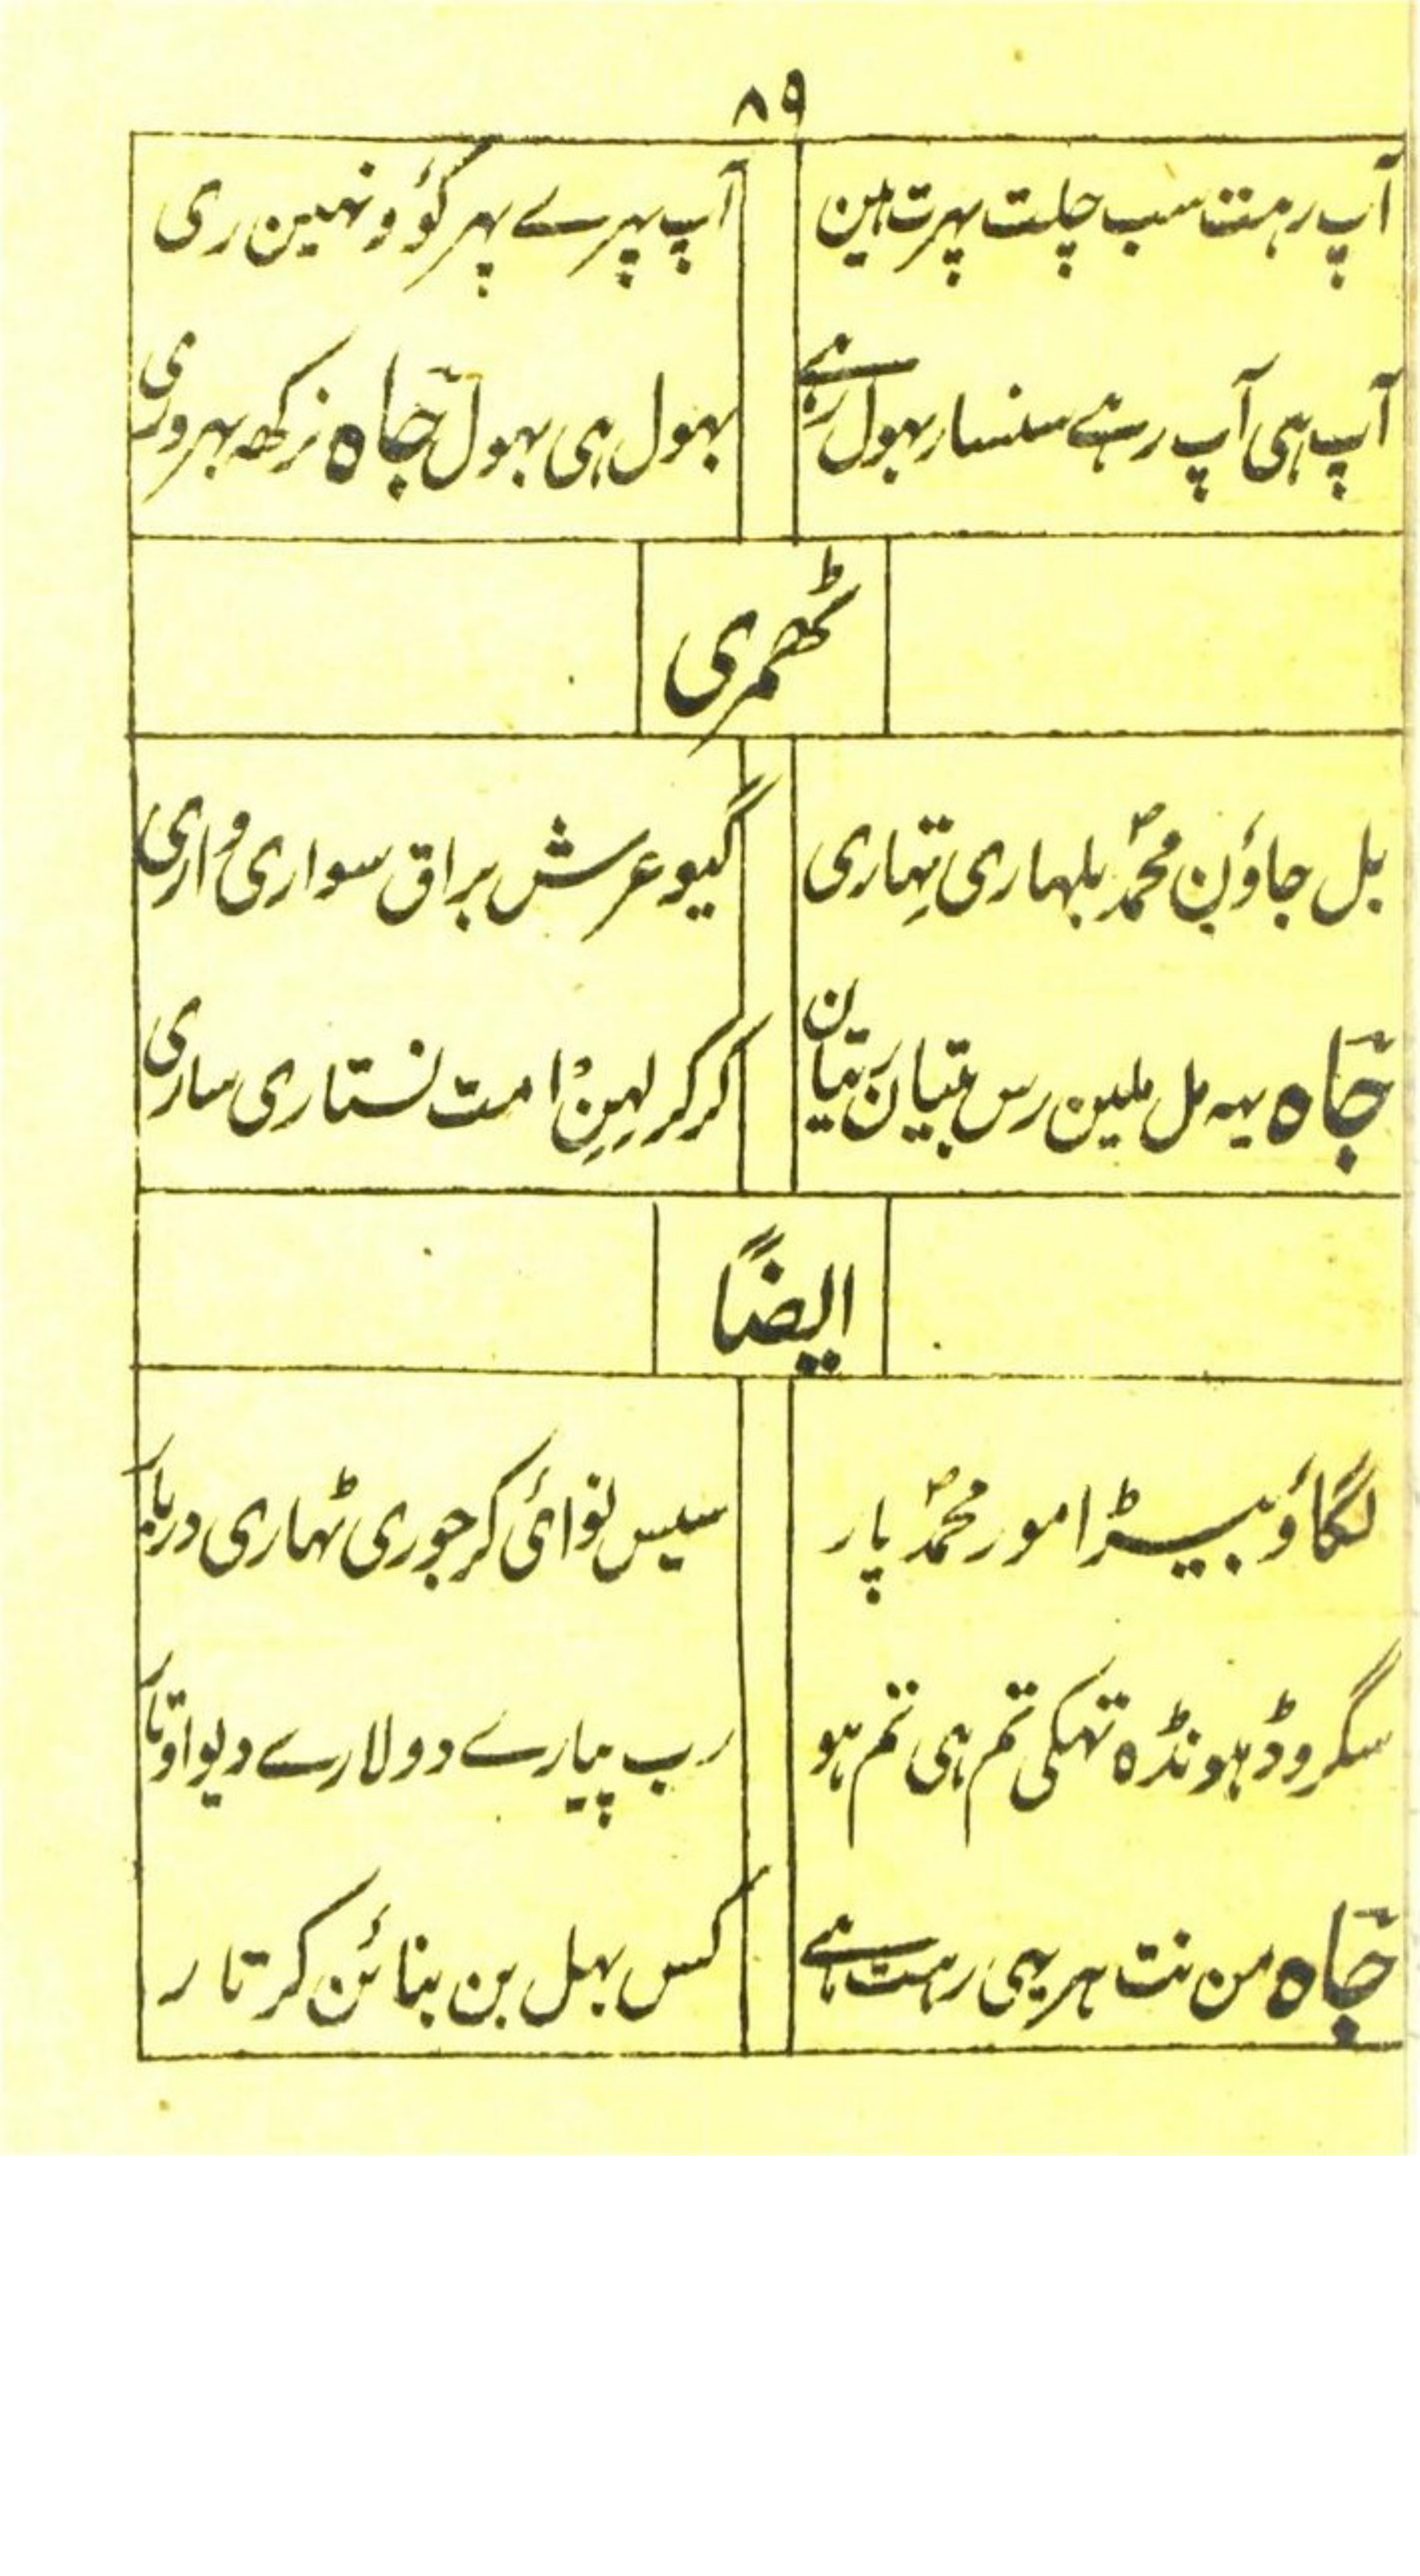 ۸۹
آپ رہت سب چلت پہرت ہین
آپ پہرے پہر کوٗو نہین ری
آپ ہی آپ رہے سنسار بہول رہے
بہول ہی بہول جاہ نرکھ بہروری
ٹھمری
بل جاؤن محمدؐ بلہاری تہاری
گیو عرش براق سواری واری
جاہ یہہ مل ملین رس بتیان رتیان
کر کر لہن امت نستاری ساری
ایضاً
لگاؤ بیڑا مور محمدؐ پار
سیس نوائی کر جوری ٹہاری دربار
سگرو ڈہونڈہ تہکی تم ہی تم ہو
رب پیارے دولارے دیو اوتار
جاہ من نت ہر یہی رہت ہے
کس بہل بن بنائن کرتار